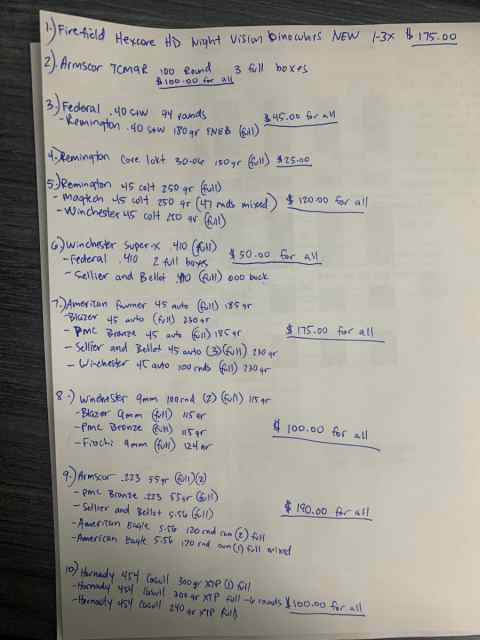 1.) Firefield Hexcore HD Night Vision binoculars NEW 1-3x $175.00
2.) Armscor TCM9R 100 Round 3 full boxes
$100.00 for all
3.) Federal .40 S+W 94 rounds
- Remington .40 S+W 180 gr (full) $45.00 for all
4.) Remington Core lokt 30-06 150 gr (full) $25.00
5.) Remington 45 colt 250 gr (full)
- Magtech 45 colt 250 gr (47 rnds mixed) $120.00 for all
- Winchester 45 colt 250 gr (full)
6.) Winchester Super-x .410 (full)
- Federal .410 2 full boxes $50.00 for all
- Sellier and Bellot .410 (full) 000 buck
7.) American Gunner 45 auto (full) 185 gr
- Blazer 45 auto (full) 230 gr
- PMC Bronze 45 auto (full) 185 gr $175.00 for all
- Sellier and Bellot 45 auto (3) (full) 230 gr
- Winchester 45 auto 100 rnds (full) 230 gr
8.) Winchester 9mm 100 rnd (2) (full) 115 gr
- Blazer 9mm (full) 115 gr
- PMC Bronze (full) 115 gr $100.00 for all
- Fiocchi 9mm (full) 124 gr
9.) Armscor .223 55 gr (full) (2)
- PMC Bronze .223 55 gr (full)
- Sellier and Bellot 5.56 (full) $190.00 for all
- American Eagle 5.56 120 rnd can (2) full
- American Eagle 5.56 120 rnd can (1) full mixed
10.) Hornady 454 Casull 300 gr XTP (1) full
- Hornady 454 Casull 300 gr XTP full -6 rounds $100.00 for all
- Hornady 454 Casull 240 gr XTP full